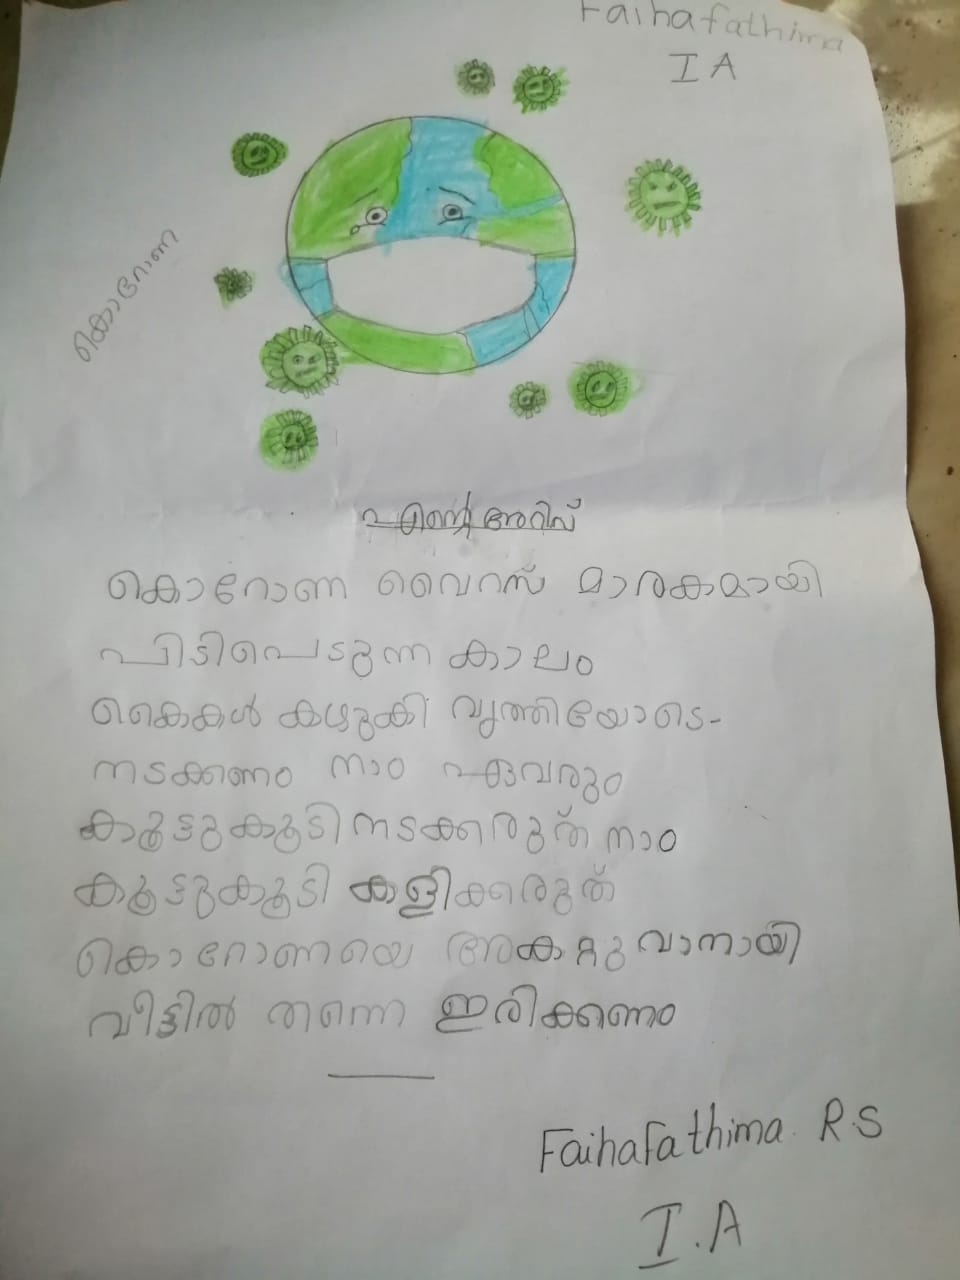 Faihafathima
I A
കൊറോണ
എന്റെ അറിവ്
കൊറോണ വൈറസ് മാരകമായി
പിടിപെടുന്ന കാലം
കൈകൾ കഴുകി വൃത്തിയോടെ-
നടക്കണം നാം ഏവരും
കൂട്ടുകൂടി നടക്കരുത് നാം
കൂട്ടുകൂടി കളിക്കരുത്
കൊറോണയെ അകറ്റുവാനായി
വീട്ടിൽ തന്നെ ഇരിക്കണം
Faihafathima R.S
I.A